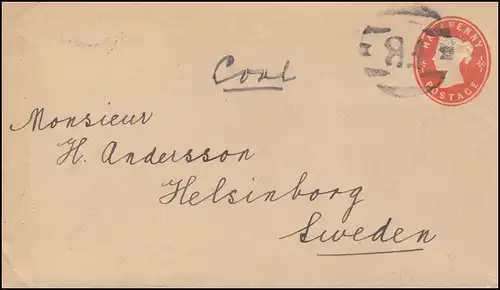 HALFPENNY
POSTAGE
Cool
Monsieur
H. Andersson
Helsinborg
Sweden